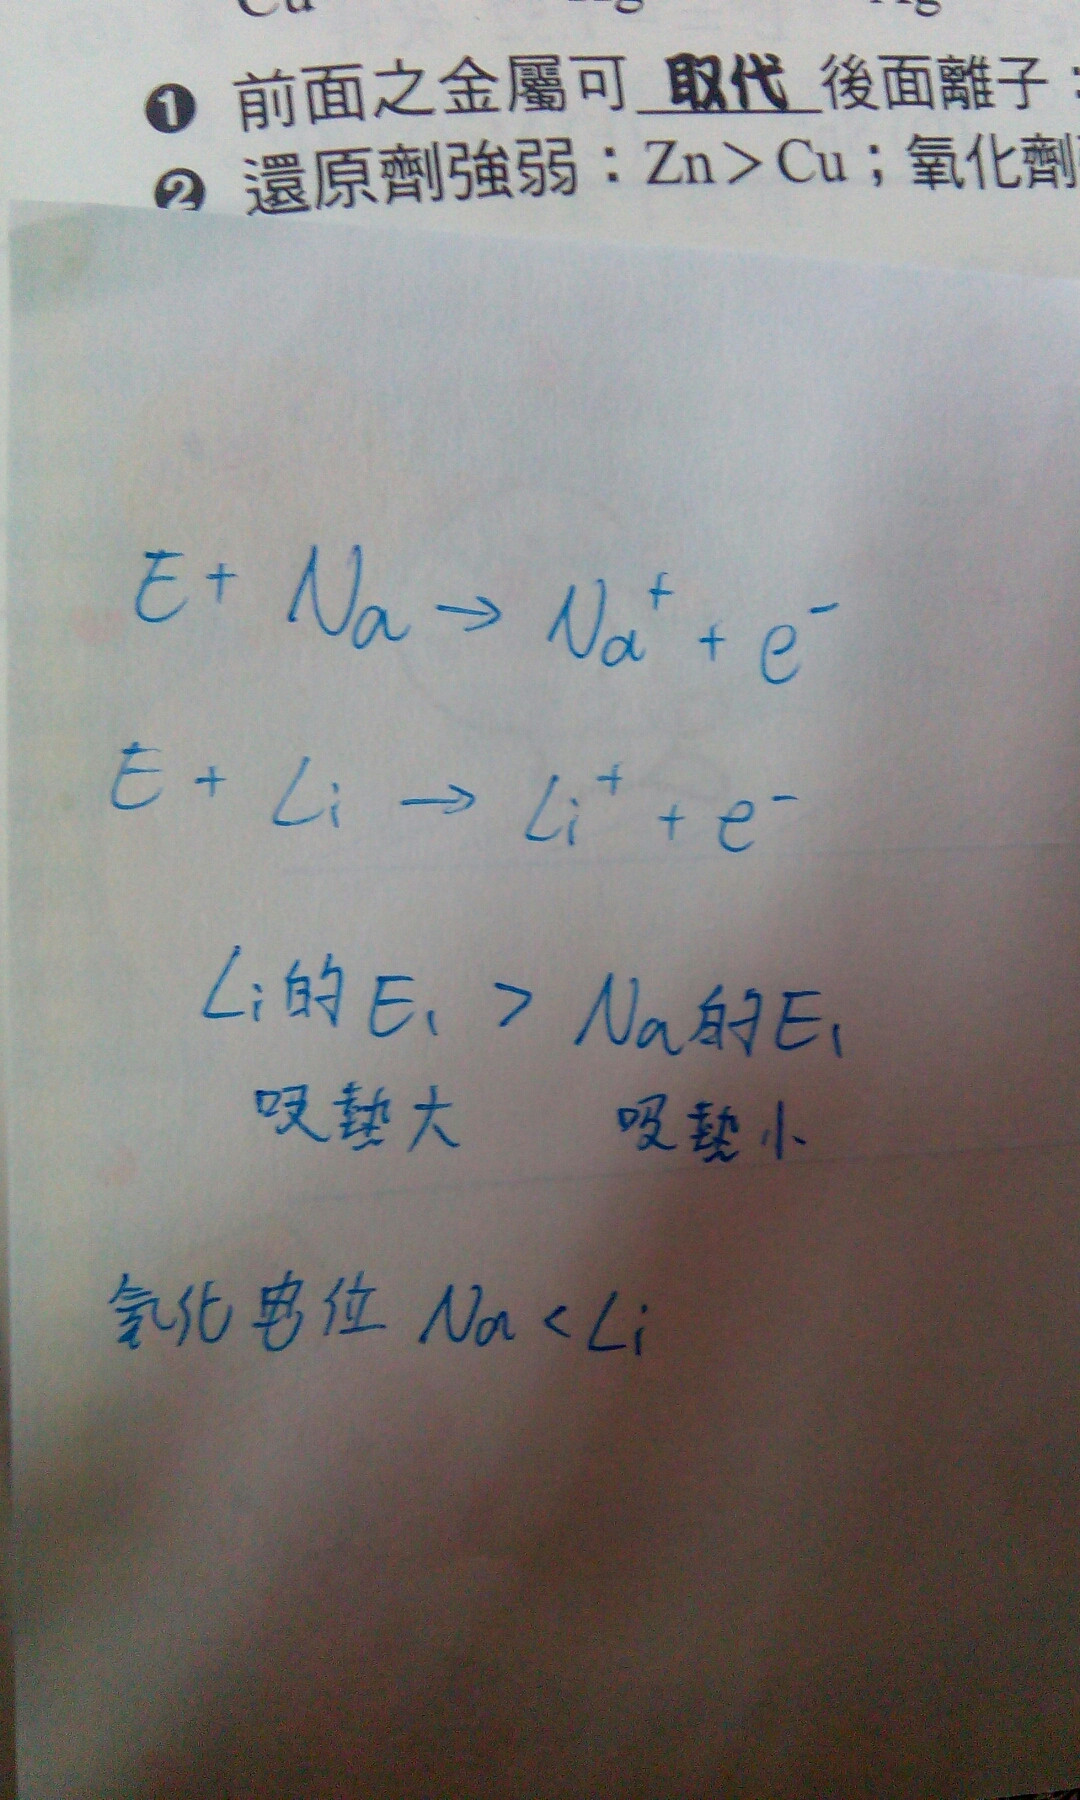 ❶ 前面之金屬可 取代 後面離子：
❷ 還原劑強弱：Zn＞Cu；氧化劑
E + Na → Na⁺ + e⁻
E + Li → Li⁺ + e⁻
Li的E₁ > Na的E₁
吸熱大 吸熱小
氧化電位 Na < Li